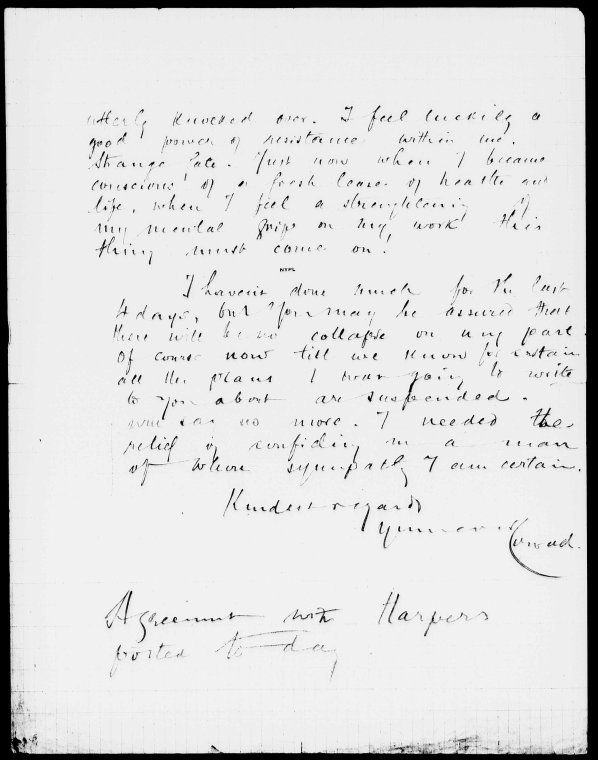 utterly knocked over. I feel luckily a
good power of resistance within me.
Strange fate. Just now when I became
conscious of a fresh lease of health and
life, when I feel a strengthening of
my mental grips on my work this
thing must come on!
NYPL
I haven't done much for the last
4 days, but You may be assured that
there will be no collapse on my part.
Of course now till we know for certain
all the plans I was going to write
to You about are suspended.
say no more. I needed the
relief of confiding in a man
of whose sympathy I am certain.
Kindest regards
Yours ever
Conrad.
Agreement with Harpers
posted to-day